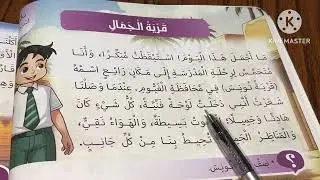 KINEMASTER
قَرْيَةُ الْجَمَالِ
مَا أَجْمَلَ هَذَا الْيَوْمَ! اسْتَيْقَظْتُ مُبَكِّرًا، وَأَنَا
مُتَحَمِّسٌ لِرِحْلَةِ الْمَدْرَسَةِ إِلَى مَكَانٍ رَائِعٍ اسْمُهُ
(قَرْيَةُ تُونِسَ) فِي مُحَافَظَةِ الْفَيُّومِ. عِنْدَمَا وَصَلْنَا
شَعَرْتُ أَنَّنِي دَخَلْتُ لَوْحَةً فَنِّيَّةً، كُلُّ شَيْءٍ كَانَ
هَادِئًا وَجَمِيلًا، بُيُوتٌ بَسِيطَةٌ، وَالْهَوَاءُ نَقِيٌّ،
وَالْمَنَاظِرُ تُحِيطُ بِنَا مِنْ كُلِّ جَانِبٍ.
؟